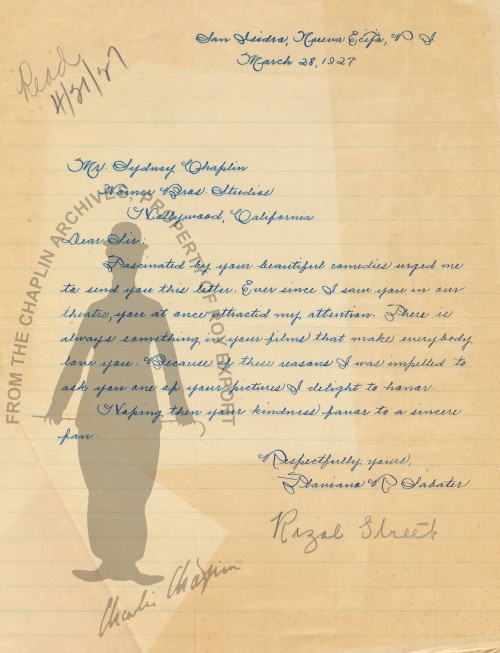 San Isidro, Nueva Ecija, P I
March 28, 1927
Read
4/31/27
Mr. Sydney Chaplin
Warner Bros. Studios
Hollywood, California
Dear Sir:
Fascinated by your beautiful comedies urged me
to send you this letter. Ever since I saw you in our
theatre, you at once attracted my attention. There is
always something in your films that make everybody
love you. Because of these reasons I was impelled to
ask you one of your pictures I delight to honor.
Hoping then your kindness favor to a sincere
fan.
Respectfully yours,
Flaviano R Sabater
Rizal Street
FROM THE CHAPLIN ARCHIVES, PROPERTY OF ROY EXPORT
Charlie Chaplin